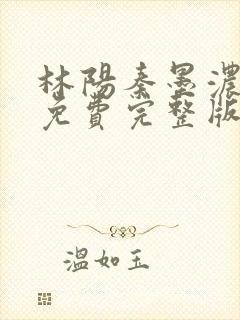 林陽秦墨濃
免費完整版
溫如玉